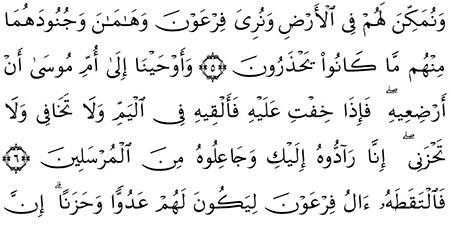 وَنُمَكِّنَ لَهُمْ فِى ٱلْأَرْضِ وَنُرِىَ فِرْعَوْنَ وَهَٰمَٰنَ وَجُنُودَهُمَا
مِنْهُم مَّا كَانُوا۟ يَحْذَرُونَ ﴿٥﴾ وَأَوْحَيْنَآ إِلَىٰٓ أُمِّ مُوسَىٰٓ أَنْ
أَرْضِعِيهِ ۖ فَإِذَا خِفْتِ عَلَيْهِ فَأَلْقِيهِ فِى ٱلْيَمِّ وَلَا تَخَافِى وَلَا
تَحْزَنِىٓ ۖ إِنَّا رَآدُّوهُ إِلَيْكِ وَجَاعِلُوهُ مِنَ ٱلْمُرْسَلِينَ ﴿٦﴾
فَٱلْتَقَطَهُۥٓ ءَالُ فِرْعَوْنَ لِيَكُونَ لَهُمْ عَدُوًّا وَحَزَنًا ۗ إِنَّ